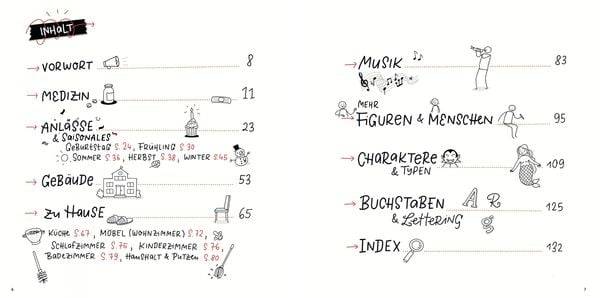 INHALT
VORWORT 8
MEDIZIN 11
ANLÄSSE 23
& SAISONALES
GEBURTSTAG S.24, FRÜHLING S.30
SOMMER S.34, HERBST S.38, WINTER S.45
GEBÄUDE 53
ZU HAUSE 65
KÜCHE S.67, MÖBEL (WOHNZIMMER) S.72,
SCHLAFZIMMER S.76, KINDERZIMMER S.76,
BADEZIMMER S.79, HAUSHALT & PUTZEN S.80
6
MUSIK 83
MEHR
FIGUREN & MENSCHEN 95
CHARAKTERE 109
& TYPEN
BUCHSTABEN 125
& LETTERING
A R
g
INDEX 132
7